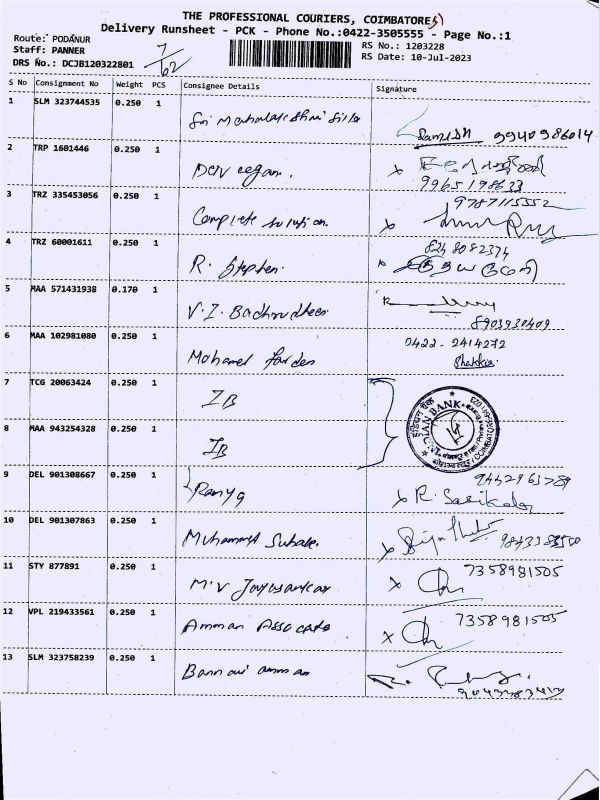 THE PROFESSIONAL COURIERS, COIMBATORE
Delivery Runsheet - PCK - Phone No.:0422-3505555 - Page No.:1
Route: PODANUR
Staff: PANNER
DRS No.: DCJB120322801
7/62
RS No.: 1203228
RS Date: 10-Jul-2023
S No Consignment No Weight PCS Consignee Details Signature
1 SLM 323744535 0.250 1 Sri 9940986014
2 TRP 1601446 0.250 1 9965198633
3 TRZ 335453056 0.250 1 Complete solution. 9787115552
4 TRZ 60001611 0.250 1 R. Stephen. 8248082374
5 MAA 571431938 0.170 1 V.I. 8903930409
6 MAA 102981080 0.250 1 Mohamed 0422-2414272
7 TCG 20063424 0.250 1 IB
INDIAN BANK
8 MAA 943254328 0.250 1 IB
9 DEL 901308667 0.250 1 Ramya 9442963789
R. Sasikala
10 DEL 901307863 0.250 1 Muhammed
11 STY 877891 0.250 1 M.V 7358981505
12 VPL 219433561 0.250 1 Amman 7358981505
13 SLM 323758239 0.250 1 Bannari amman